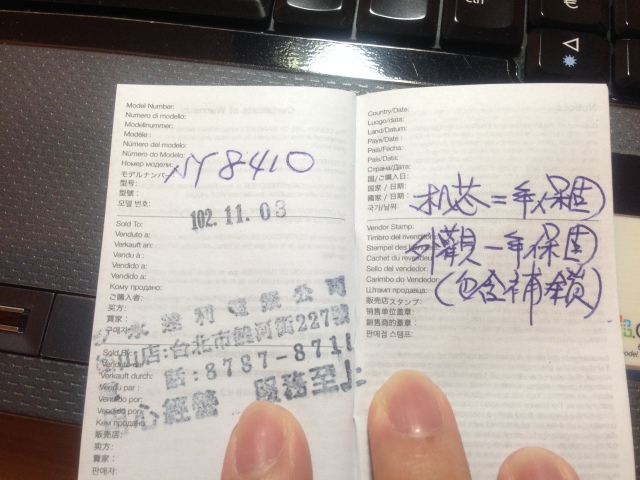 Model Number:
Numero di modello:
Modellnummer:
Modèle :
Número del modelo:
Número do Modelo:
Номер модели:
モデルナンバー:
型号:
型號:
모델 번호:
NY8410
102.11.03
Sold To:
Venduto a:
Verkauft an:
Vendu à :
Vendido a:
Vendido a:
Кому продано:
ご購入者:
买方:
買家:
公司
店:台北市饒河街227號
話:8787-871
心經營 服務至上
Sold By:
Verkauft durch:
Vendu par :
Vendido por:
Vendido por:
Кем продано:
販売店:
卖方:
賣家:
판매자:
Country/Date:
Luogo/data:
Land/Datum:
Pays/Date :
País/Fecha:
País/Data:
Страна/Дата:
国/ご購入日:
国家 / 日期:
國家 / 日期:
국가/날짜:
机芯=年保固
Vendor Stamp:
Timbro del rivenditore:
Stempel des
Cachet du revendeur
Sello del vendedor:
Carimbo do Vendedor:
Штамп продавца:
販売店スタンプ:
销售单位盖章:
銷售商的蓋章:
판매점 스탬프:
外觀一年保固
(包含補鎖)